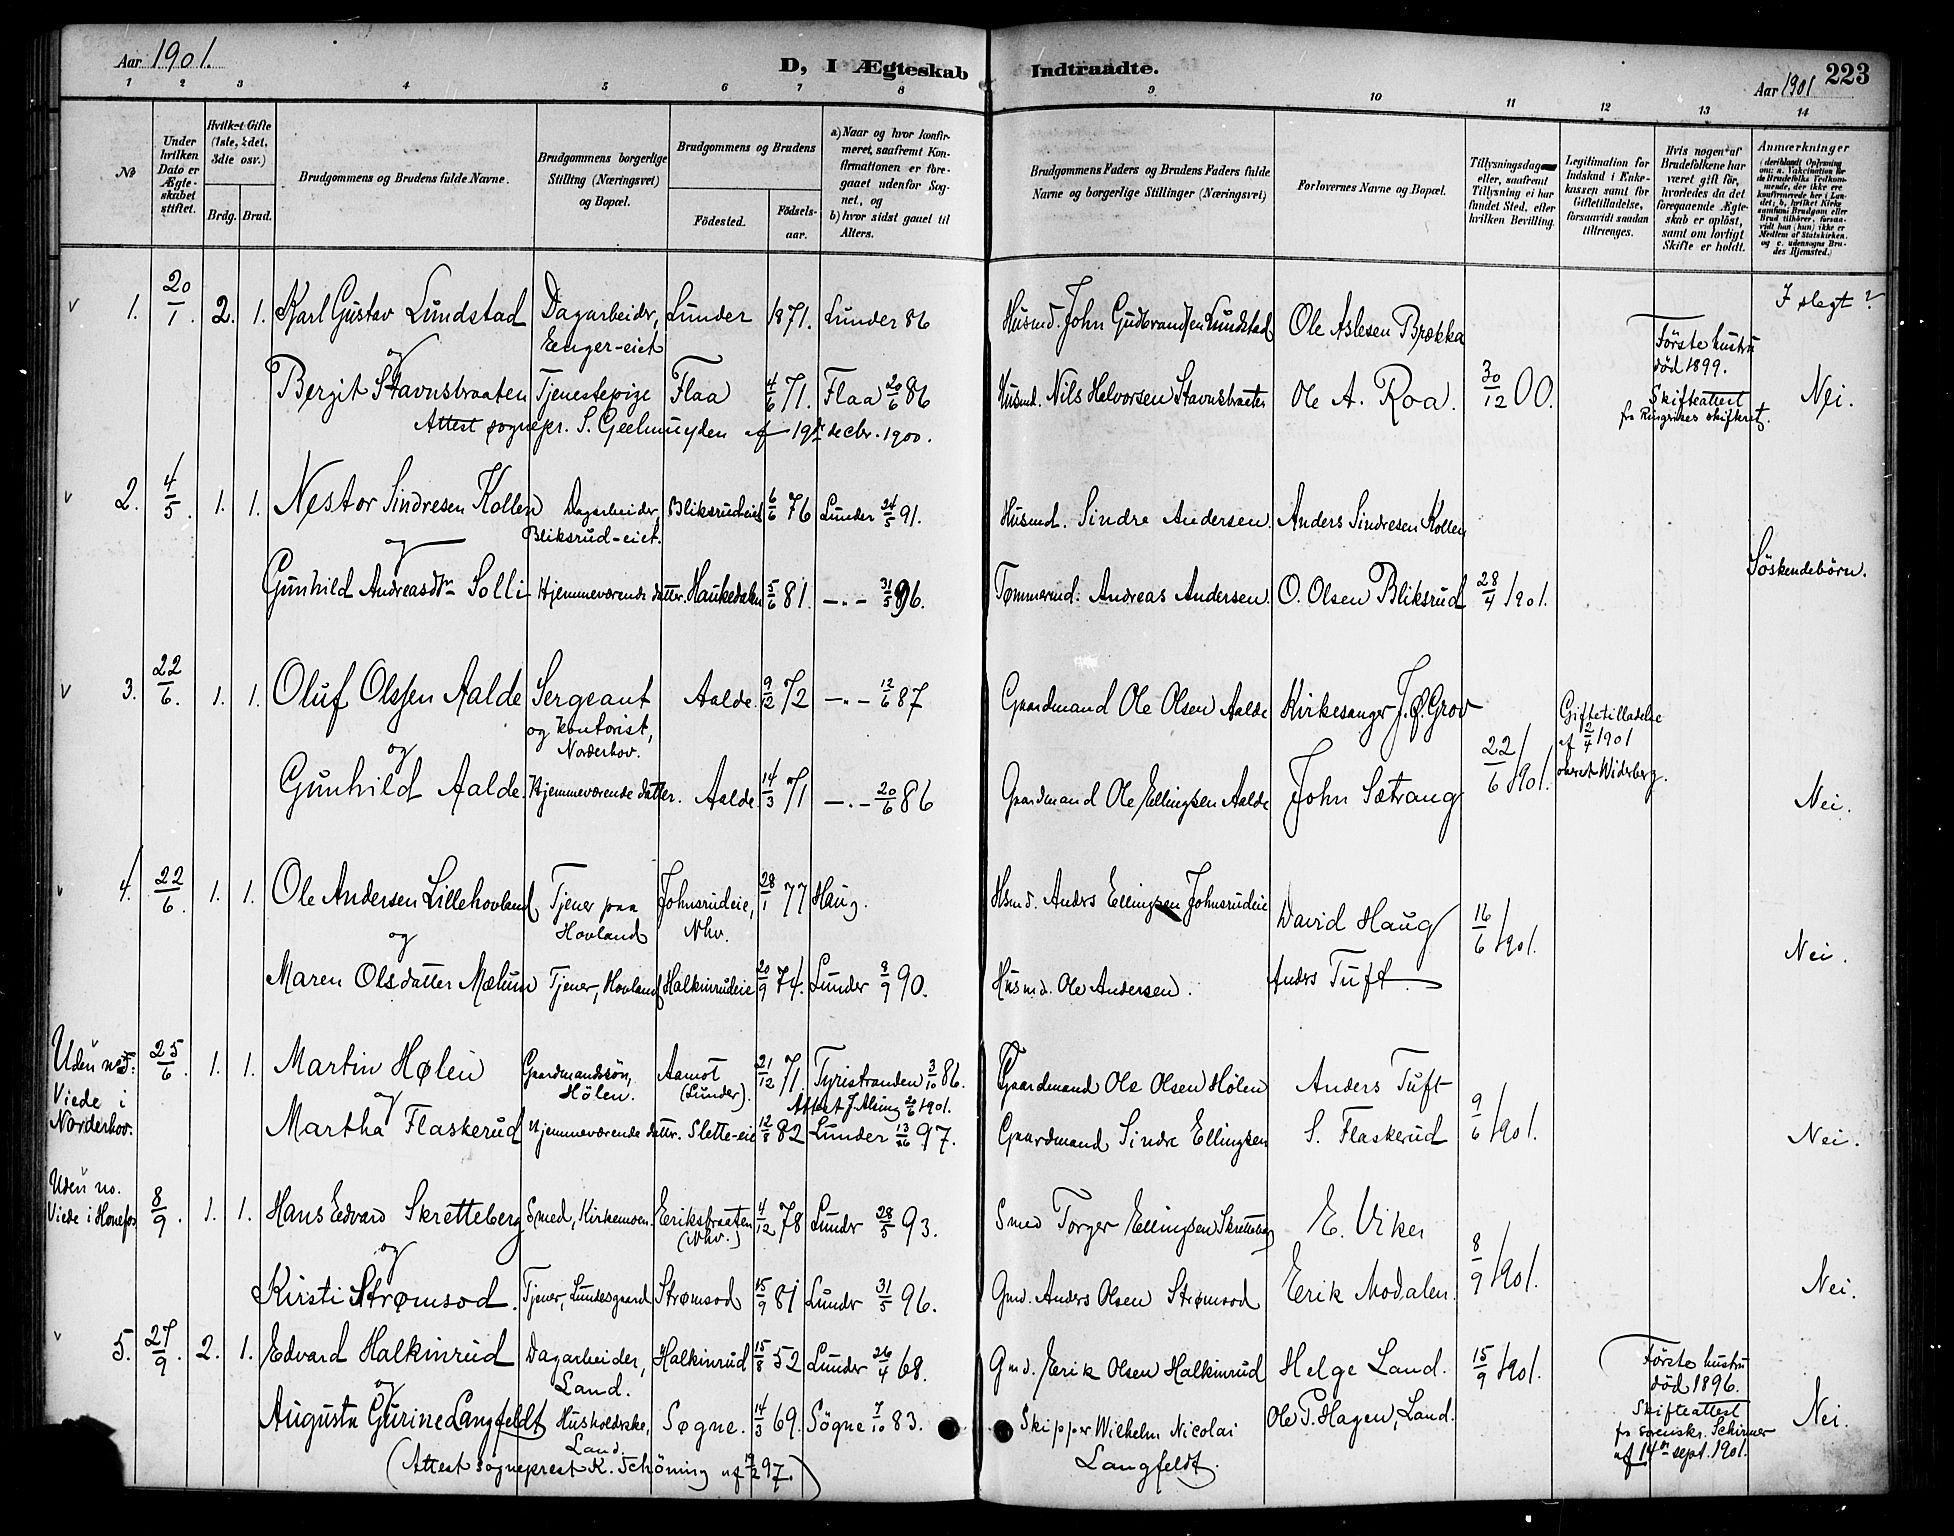 Aar 1901.
D, I Ægteskab Indtraadte.
Aar 1901
223
1 2 3 4 5 6 7 8 9 10 11 12 13 14
No
Under hvilken Dato er Ægteskabet stiftet.
Hvilket Gifte (1ste, 2det, 3die osv.)
Brdg. Brud.
Brudgommens og Brudens fulde Navne.
Brudgommens borgerlige Stilling (Næringsvei) og Bopæl.
Brudgommens og Brudens
Födested. Födsels-aar.
a) Naar og hvor konfirmeret, saafremt Konfirmationen er foregaaet udenfor Sognet, og
b) hvor sidst gaaet til Alters.
Brudgommens Faders og Brudens Faders fulde Navne og borgerlige Stillinger (Næringsvei)
Forlovernes Navne og Bopæl.
Tillysningsdage eller, saafremt Tillysning ei har fundet Sted, efter hvilken Bevilling.
Legitimation for Indskud i Enkekassen samt for Giftetilladelse, forsaavidt saadan tiltrænges.
Hvis nogen af Brudefolkene har været gift för, hvorledes da det foregaaende Ægteskab er oplöst, samt om lovligt Skifte er holdt.
Anmærkninger
(deriblandt Oplysning om: a. Vaccination for de Brudefolks Vedkommende, der ikke ere konfirmerede her i Landet; b. hvilket Kirkesamfund Brudgom eller Brud tilhörer, forsaavidt han (hun) ikke er Medlem af Statskirken, og c. udensogns Brudes Hjemsted.)
v 1. 20/1. 2. 1. Karl Gustav Lundstad Dagarbeider, Lunder 1871. Lunder 86 Husmd. John Gudbrandsen Lundstad Ole Aslesen Brækka I slegt?
Eenger-eiet
og
Første hustru død 1899.
Bergit Stavnsbraaten Tjenestepige Flaa 4/6 71. Flaa 20/6 86 Husmd. Nils Helvorsen Stavnsbraaten Ole A. Roa. 30/12 00. Skifteattest fra Ringrikes skifteret. Nei.
Attest sognepr. S. Geelmuyden af 19de decbr. 1900.
v 2. 4/5. 1. 1. Nestor Sindresen Kollen Dagarbeider, Bliksrudeiet 6/6 76 Lunder 24/5 91. Husmd. Sindre Andersen. Anders Sindresen Kollen
Bliksrud-eiet.
og
Söskendebörn.
Gunhild Andreasdtr Solli Hjemmeværende datter. Haukedalen 5/6 81. —.— 31/5 96. Tømmermd. Andreas Andersen O. Olsen Bliksrud 28/4 1901.
v 3. 22/6. 1. 1. Oluf Olssen Aalde Sergeant Aalde. 9/2 72 —.— 12/6 87 Gaardmand Ole Olsen Aalde Kirkesanger J. Ø. Grov Giftetilladelse
og kontorist, Norderhov.
af 2/4 1901
og
Gunhild Aalde. Hjemmeværende datter. Aalde 14/3 71 —.— 20/6 86 Gaardmand Ole Ellingsen Aalde John Sætrang 22/6 1901. oberst Widerberg. Nei.
v 4. 22/6. 1. 1. Ole Andersen Lillehovland Tjener paa Johnsrudeie, 28/1 77 Haug. Hsmd. Anders Ellingsen Johnsrudeie David Haug 16/6 1901.
Hovland Nhv.
og
Nei.
Maren Olsdatter Mælum Tjener, Hovland Halkinrudeie 20/9 74. Lunder 8/9 90. Husmd. Ole Andersen. Anders Tuft
Uden no 5. 25/6. 1. 1. Martin Hølen Gaardmandssön, Aamot 21/12 71. Tyristranden 3/10 86. Gaardmand Ole Olsen Hölen Anders Tuft
Viede i Norderhov.
Hölen. (Lunder). Attest J. Alsing 20/6 1901.
og
Martha Flaskerud Hjemmeværende dattr. Slette-eie 12/8 82 Lunder 13/6 97. Gaardmand Sindre Ellingsen S. Flaskerud 9/6 1901. Nei.
Uden no.
Viede i Honefos 8/9. 1. 1. Hans Edvard Skretteberg Smed, Kirkemoen. Eeriksbraaten 4/12 78 Lunder 28/5 93. Smed Torger Ellingsen Skretteberg E. Viker
(Nhv.)
og
Kirsti Strømsod. Tjener, Lundesgaard Strømsod 15/9 81 Lunder 31/5 96. Gmd. Anders Olsen Strømsod Erik Modalen. 8/9 1901. Nei.
v 5. 27/9. 2. 1. Edvard Halkinrud Dagarbeider, Halkinrud 15/8 52 Lunder 26/4 68. Gmd. Erik Olsen Halkinrud Helge Land. 15/9 1901. Første hustru død 1896.
Land.
og
Augusta Gurine Langfeldt Husholderske, Søgne. 14/3 69. Sögne 7/10 83. Skipper Wilhelm Nicolai Ole P. Hagen, Land. Skifteattest Nei.
Land. Langfeldt. fr sorenskr. Schirmer
(Attest sogneprest K. Schöning af 19/2 97.) af 14de sept. 1901.